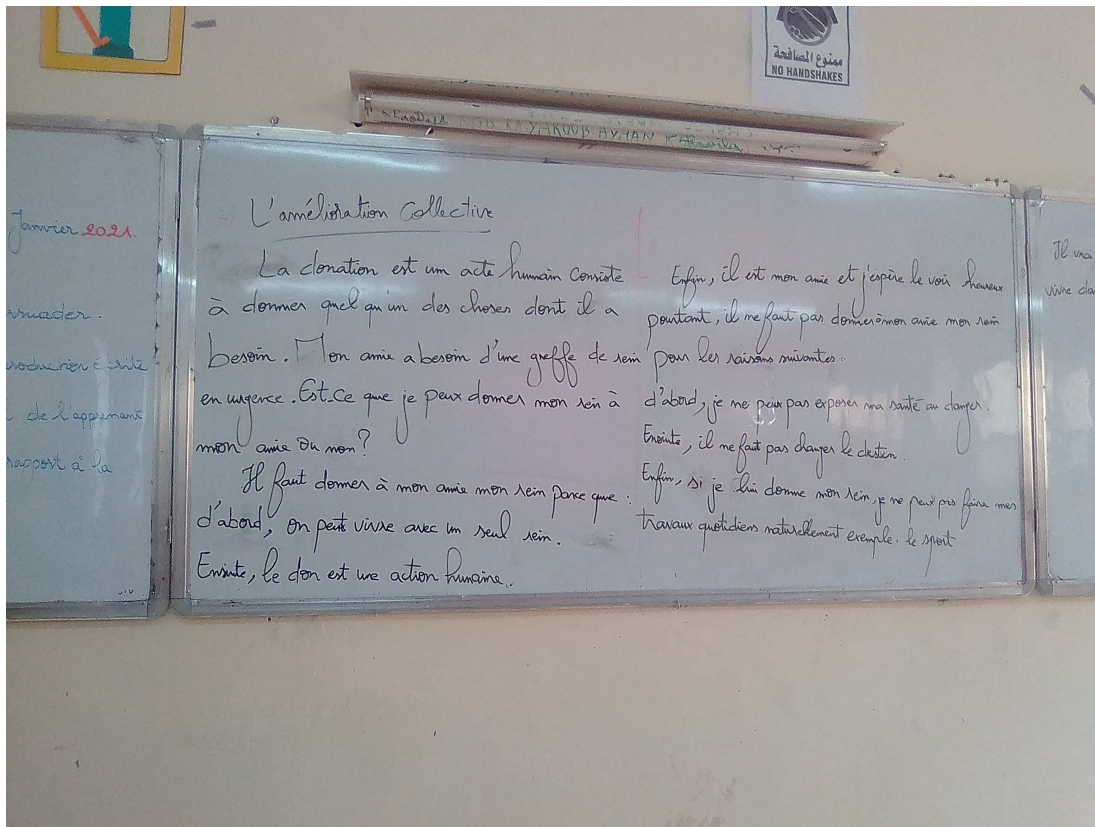 ممنوع المصافحة
NO HANDSHAKES
YAKOUB AYMAN
Janvier 2021.
rsuader.
roduction écrite
de l'apprenant
rapport à la
L'amélioration Collective
La donation est um acte humain Consiste
à donner quelqu'un des choses dont il a
besoin. Mon amie a besoin d'une greffe de rein
en urgence. Est-Ce que je peux donner mon rein à
mon amie ou non?
Il faut donner à mon amie mon rein parce que :
d'abord, on peut vivre avec un seul rein.
Ensuite, le don est une action humaine..
Enfin, il est mon amie et j'espère le voir heureux
pourtant, il ne faut pas donner à mon amie mon rein
pour les raisons suivantes :
d'abord, je ne peux pas exposer ma santé au danger.
Ensuite, il ne faut pas changer le destin.
Enfin, si je lui donne mon rein, je ne peux pas faire mes
travaux quotidiens naturellement exemple. le sport.
Il vrai
vivre da